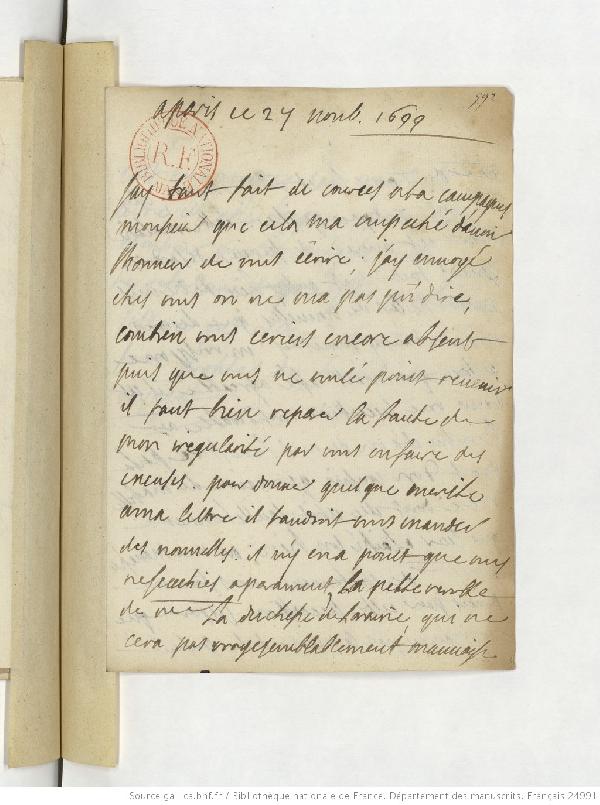 592
a paris ce 27 novb. 1699
BIBLIOTHEQUE NATIONALE R.F. MSS
Jay tant fait de courses a la campagne
monsieur que cela ma empeché davoir
lhonneur de vous écrire, jay envoyé
ches vous on ne ma pas pû dire
combien vous ceriés encore absent
puis que vous ne voulé point revenir
il faut bien reparer la faute de
mon irregularité par vous en faire des
excuses. pour donner quelque merite
a ma lettre il faudroit vous mander
des nouvelles. il ny en a point que vous
ne sachiés aparament, la petite verolle
de La duchesse de Loraine qui ne
cera pas vraysemblablement mauvaise
Source gallica.bnf.fr / Bibliothèque nationale de France. Département des manuscrits. Français 24991